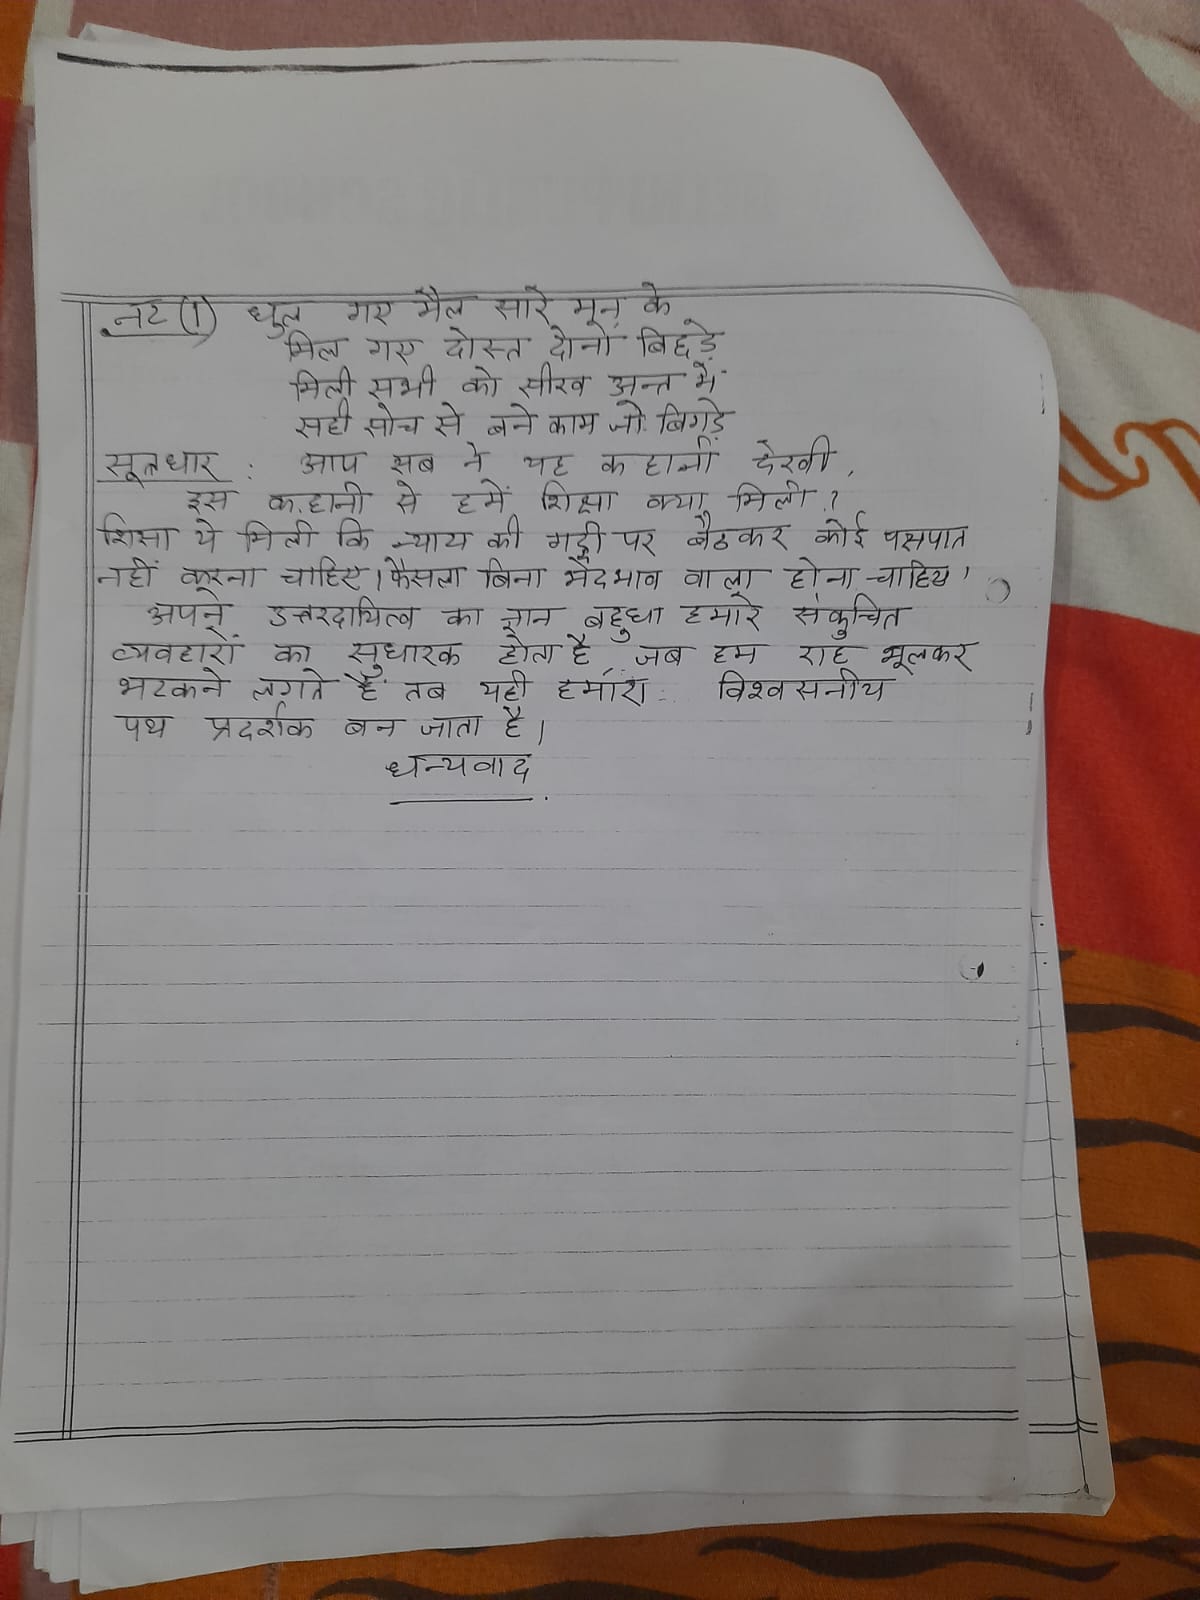 नट (1) धुल गए मैल सारे मन के
मिल गए दोस्त दोनों बिछड़े
मिली सभी को सीख अन्त में
सही सोच से बने काम जो बिगड़े
सूत्रधार : आप सब ने यह कहानी देखी,
इस कहानी से हमें शिक्षा क्या मिली?
शिक्षा ये मिली कि न्याय की गद्दी पर बैठकर कोई पक्षपात
नहीं करना चाहिए। फैसला बिना भेदभाव वाला होना चाहिए।
अपने उत्तरदायित्व का ज्ञान बहुधा हमारे संकुचित
व्यवहारों का सुधारक होता है, जब हम राह भूलकर
भटकने लगते हैं तब यही हमारा विश्वसनीय
पथ प्रदर्शक बन जाता है।
धन्यवाद